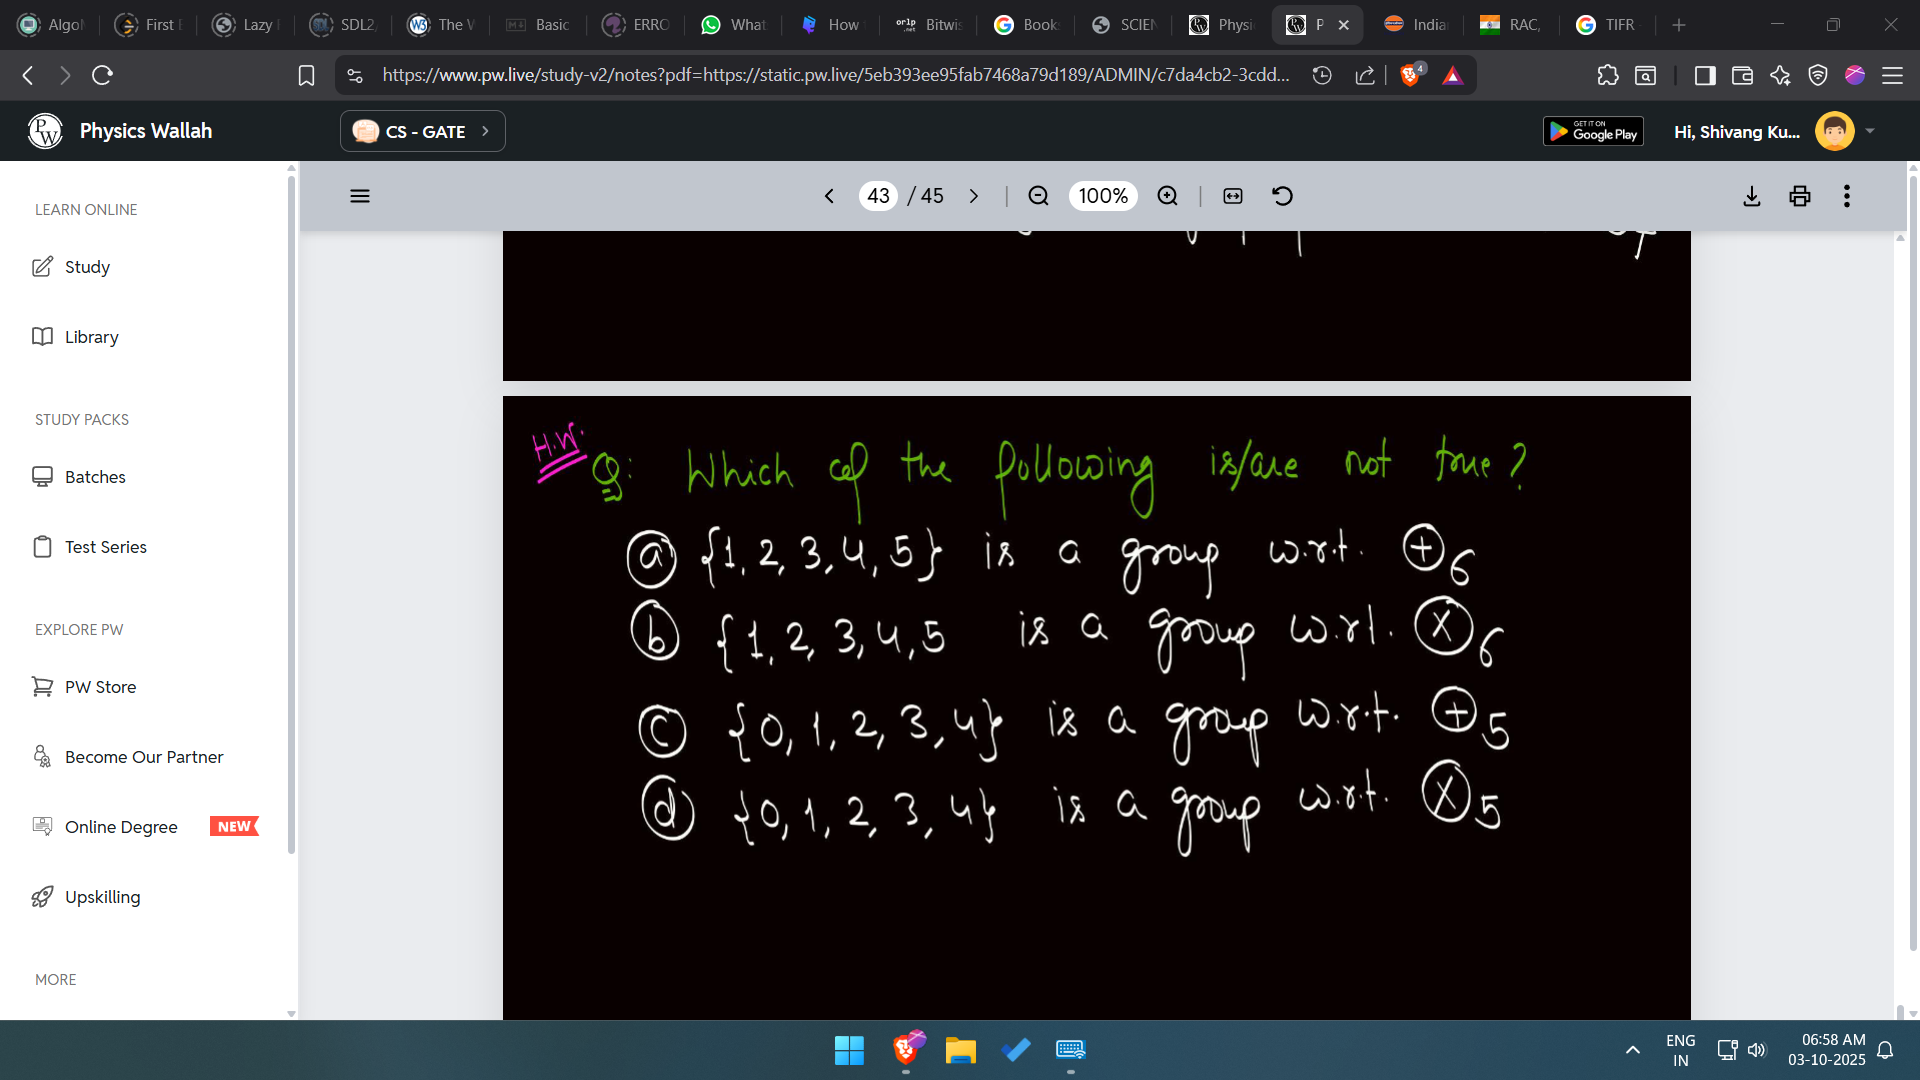 Algo
First
Lazy
SDL2
The V
Basic
ERRO
What
How
orlp .net
Bitwis
Book
SCIEN
Physi
P
India
RAC,
TIFR
https://www.pw.live/study-v2/notes?pdf=https://static.pw.live/5eb393ee95fab7468a79d189/ADMIN/c7da4cb2-3cdd...
4
PW Physics Wallah
CS - GATE
GET IT ON Google Play
Hi, Shivang Ku...
43 / 45
100%
LEARN ONLINE
Study
Library
STUDY PACKS
Batches
Test Series
EXPLORE PW
PW Store
Become Our Partner
Online Degree NEW
Upskilling
MORE
H.W.
Q: Which of the following is/are not true?
ⓐ {1, 2, 3, 4, 5} is a group w.r.t. ⊕6
ⓑ {1, 2, 3, 4, 5 is a group w.r.t. ⊗6
ⓒ {0, 1, 2, 3, 4} is a group w.r.t. ⊕5
ⓓ {0, 1, 2, 3, 4} is a group w.r.t. ⊗5
ENG
IN
06:58 AM
03-10-2025